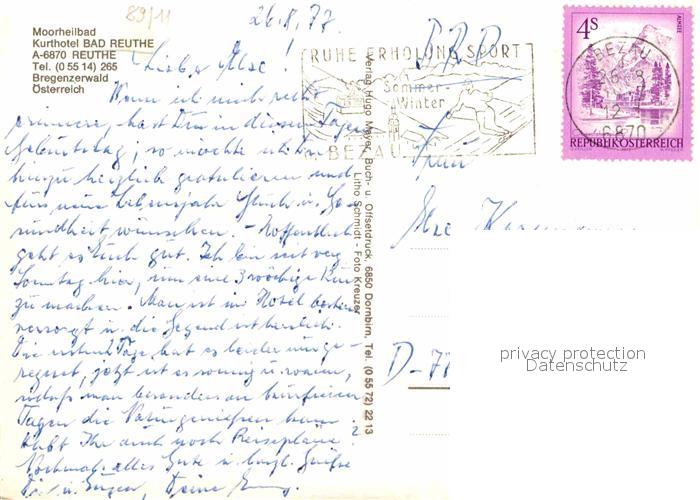 89/11
26.8.77
Moorheilbad
Kurhotel BAD REUTHE
A-6870 REUTHE
Tel. (0 55 14) 265
Bregenzerwald
Österreich
Liebe Ilse!
Wenn ich mich recht
erinnere, hast Du in diesen Tagen
Geburtstag; so möchte ich
hierzu herzlich gratulieren und
fürs neue Lebensjahr Glück u. Ge-
sundheit wünschen. - Hoffentlich
geht es Euch gut. Ich bin seit
Sonntag hier, um eine 3 wöchige Kur
zu machen. Man ist im Hotel bestens
versorgt u. die Gegend ist herrlich.
Die ersten Tage hat es leider
geregnet, jetzt ist es sonnig u. warm,
sodaß man besonders an
Tagen die Natur genießen kann.
Habt Ihr auch noch Reisepläne?
Nochmals alles Gute u. herzl. Grüße
Dir u. Eugen, Deine
Verlag Hugo Mayer, Buch- u. Offsetdruck, 6850 Dornbirn, Tel. (0 55 72) 22 13
Litho Schmidt - Foto Kreuzer
RUHE ERHOLUNG SPORT
Sommer-
Winter
BEZAU
BRD
4S
ALMSEE
BEZAU
6870
REPUBLIK ÖSTERREICH
Frau
Ilse
D-77
privacy protection
Datenschutz